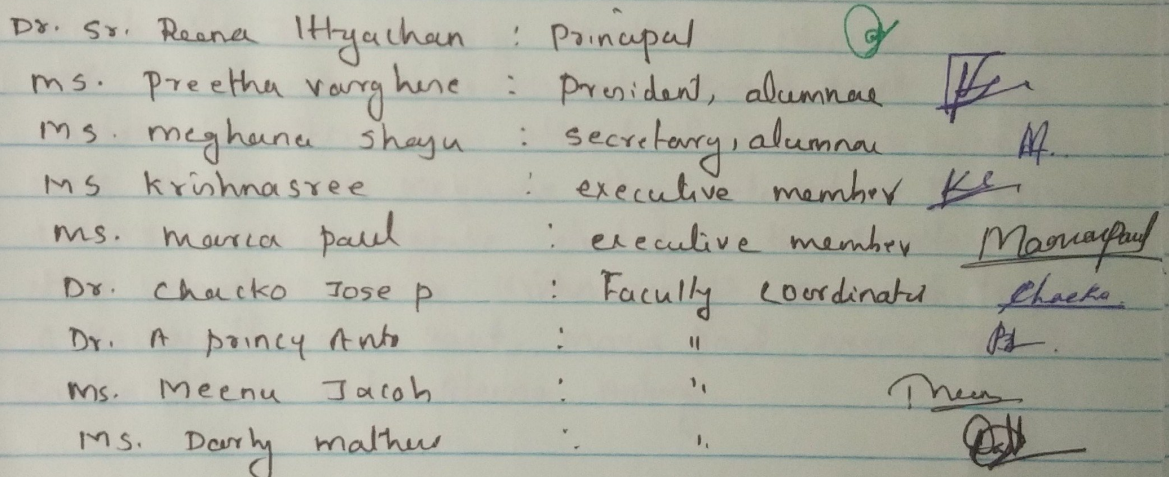 Dr. Sr. Reena Ittyachan : Principal
Ms. Preetha varghese : President, alumnae
Ms. Meghana Shayu : secretary, alumnae
Ms Krishnasree : executive member KS
Ms. Maria paul : executive member Mariapaul
Dr. Chacko Jose P : Faculty coordinator Chacko
Dr. A Princy Anto : "
Ms. Meenu Jacob : "
Ms. Darly mathew : "